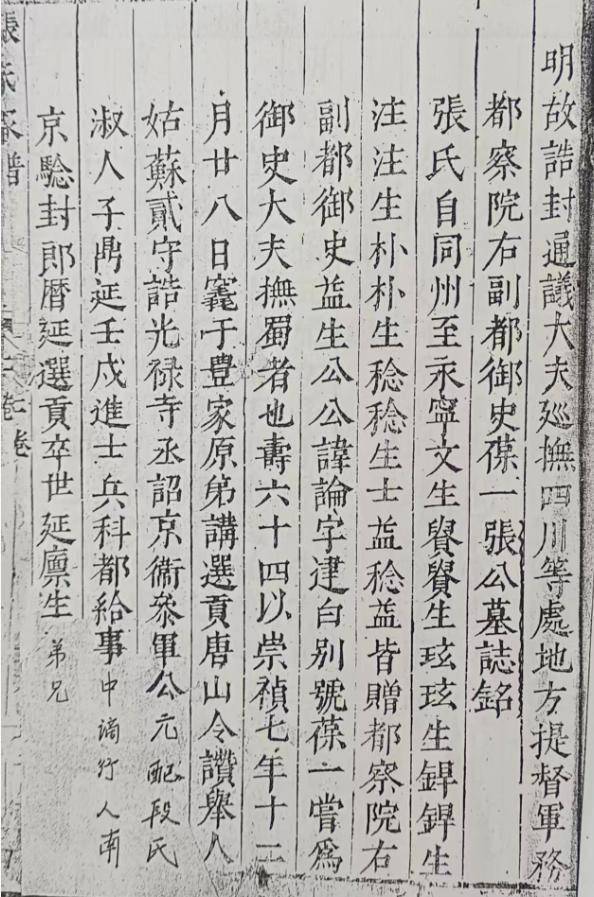 明故誥封通議大夫廵撫四川等處地方提督軍務
都察院右副都御史葆一張公墓誌銘
張氏自同州至永寧文生賢賢生玹玹生銲銲生
注注生朴朴生稔稔生士益稔益皆贈都察院右
副都御史益生公公諱論字建白别號葆一嘗爲
御史大夫撫蜀者也壽六十四以崇禎七年十二
月廿八日窆于豊家原弟講選貢唐山令讚舉人
姑蘇貳守誥光禄寺丞詔京衞叅軍公元配段氏
淑人子鼎延壬戌進士兵科都給事中謫行人南
京驗封郎曆延選貢卒世延廪生弟兄
張氏家譜
卷